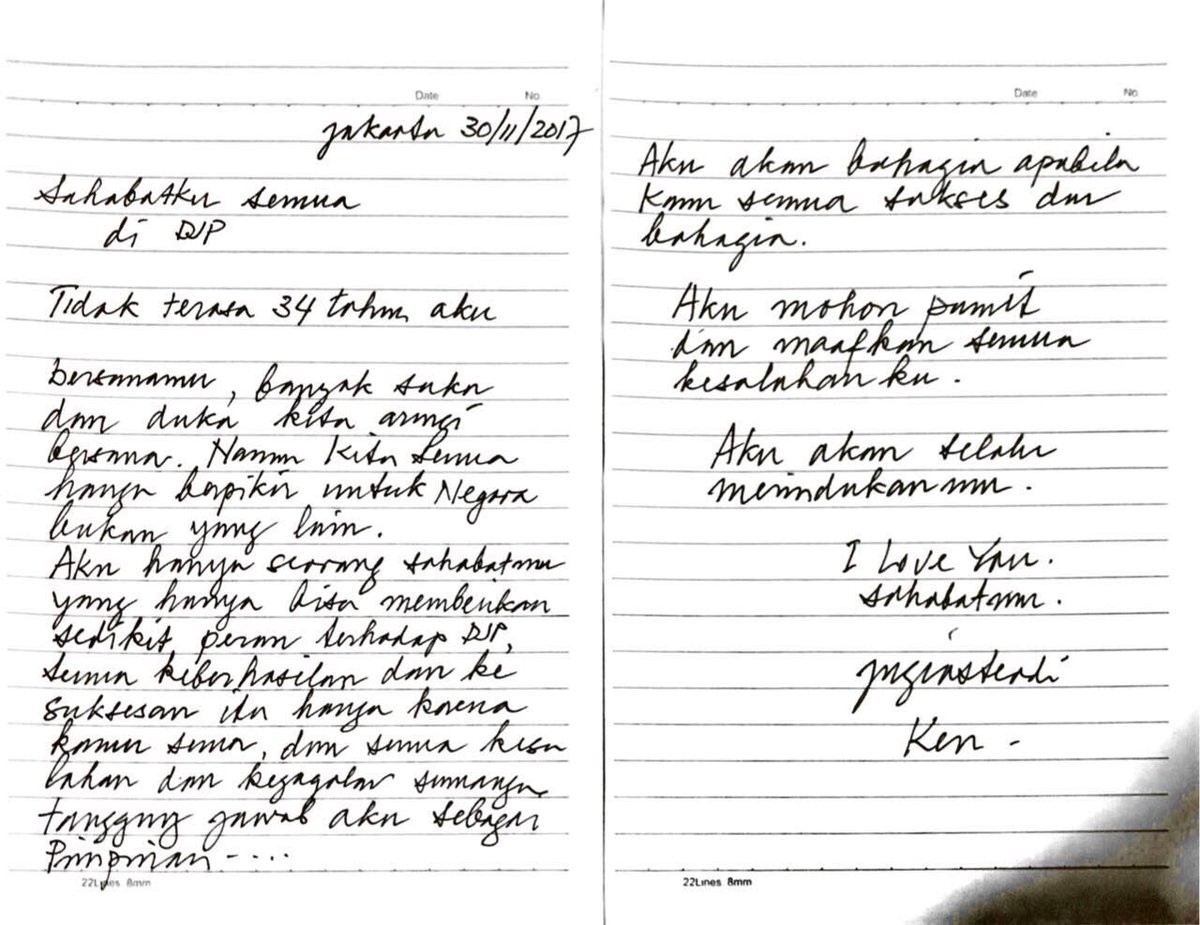 Date No
Jakarta 30/11/2017
Sahabatku semua
di DJP
Tidak terasa 34 tahun aku
bersamamu, banyak suka
dan duka kita arungi
bersama. Namun kita semua
hanya berpikir untuk Negara
bukan yang lain.
Aku hanya seorang sahabatmu
yang hanya bisa memberikan
sedikit peran terhadap DJP,
semua keberhasilan dan ke
suksesan itu hanya karena
kamu semua, dan semua kesa
lahan dan kegagalan semuanya
tanggung jawab aku sebagai
Pimpinan - ....
22Lines 8mm
Date No
Aku akan bahagia apabila
kamu semua sukses dan
bahagia.
Aku mohon pamit
dan maafkan semua
kesalahan ku.
Aku akan selalu
merindukanmu.
I Love You.
sahabatmu.
Ken -
22Lines 8mm